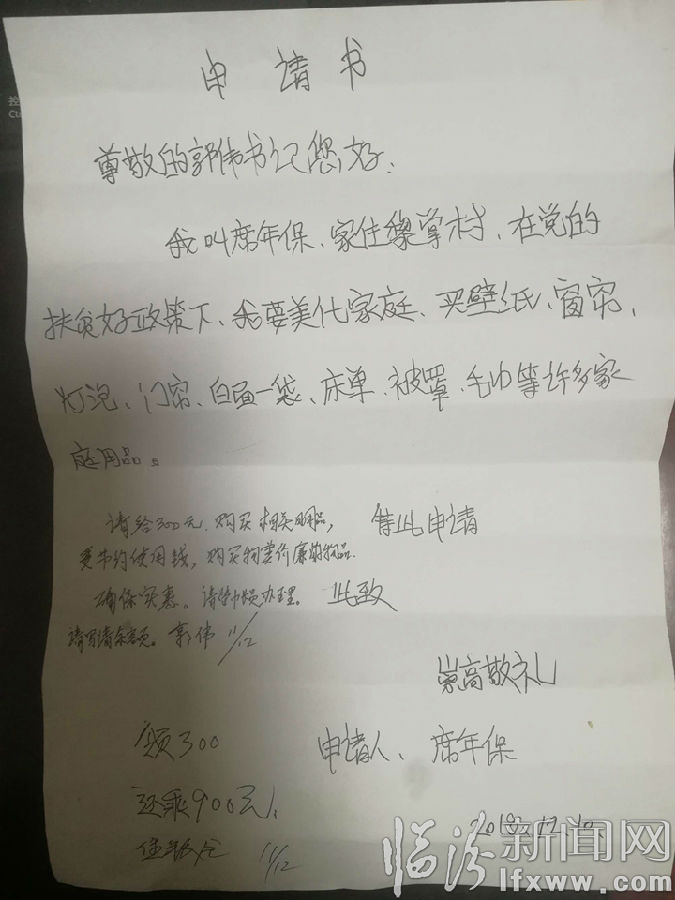 申请书
尊敬的郭伟书记您好、
我叫席年保、家住黎掌村、在党的
扶贫好政策下、我要美化家庭、买壁纸、窗帘、
灯泡、门帘、白面一袋、床单、被罩、毛巾等许多家
庭用品。
请给300元、购买相关用品，
要节约使用钱，购买物美价廉的物品.
确保实惠。请办理。
请写清余额。郭伟 11/12
特此申请
此致
崇高敬礼
申请人、席年保
2018.12.10
领300
还剩900元
11/12
临汾新闻网
lfxww.com